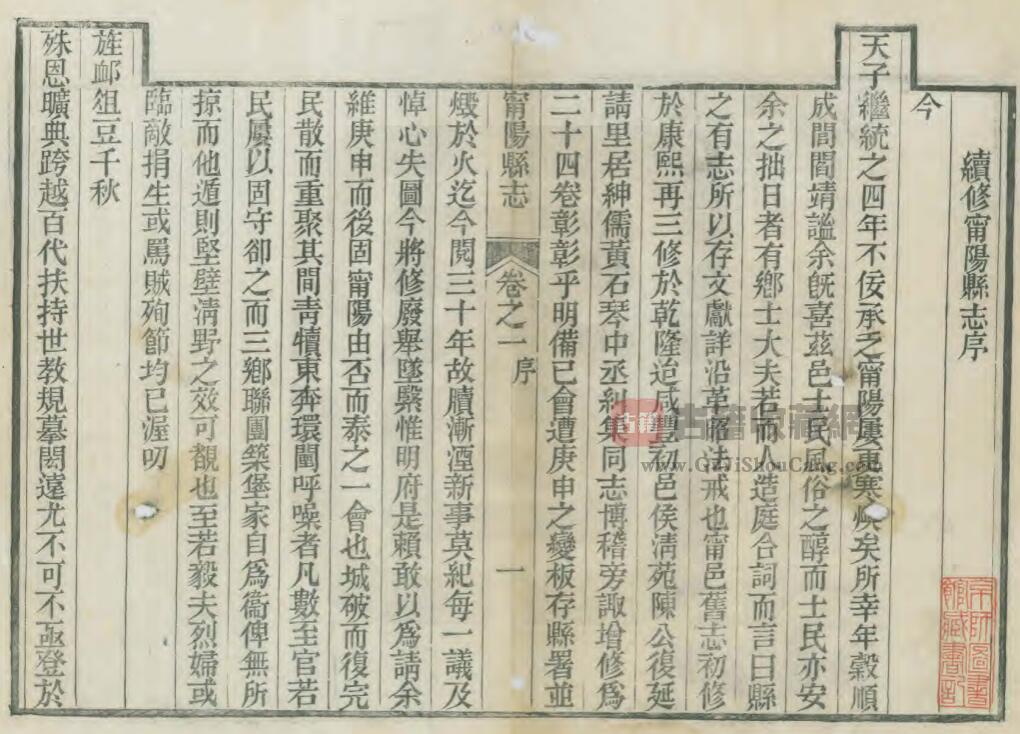 續修甯陽縣志序
今
天子繼統之四年不佞承乏甯陽屢更寒燠矣所幸年穀順
成閭閻靖謐余旣喜茲邑士民風俗之醇而士民亦安
余之拙日者有鄉士大夫若而人造庭合詞而言曰縣
之有志所以存文獻詳沿革昭法戒也甯邑舊志初修
於康熙再三修於乾隆迨咸豐初邑侯淸苑陳公復延
請里居紳儒黃石琴中丞糾集同志博稽旁諏增修爲
二十四卷彰彰乎明備已會遭庚申之變板存縣署並
甯陽縣志
卷之一
序
一
燬於火迄今閱三十年故牘漸湮新事莫紀每一議及
悼心失圖今將修廢舉墜繄惟明府是賴敢以爲請余
維庚申而後固甯陽由否而泰之一會也城破而復完
民散而重聚其間靑犢東奔環闉呼噪者凡數至官若
民屢以固守卻之而三鄉聯團築堡家自爲衞俾無所
掠而他遁則堅壁淸野之效可覩也至若毅夫烈婦或
臨敵捐生或罵賊殉節均已渥叨
旌卹俎豆千秋
殊恩曠典跨越百代扶持世教規摹閎遠尤不可不亟登於
古籍收藏網
www.GuJiShouCang.com
古籍